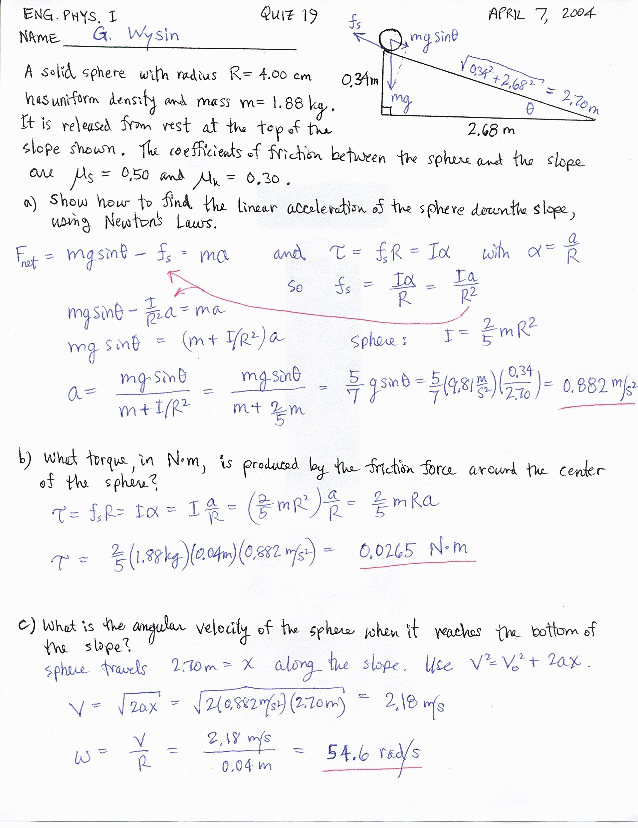 ENG. PHYS. I QUIZ 19 APRIL 7, 2004
NAME G. Wysin
fs
mg sinθ
mg
0.34m
√0.34²+2.68² = 2.70m
θ
2.68 m
A solid sphere with radius R= 4.00 cm
has uniform density and mass m= 1.88 kg.
It is released from rest at the top of the
slope shown. The coefficients of friction between the sphere and the slope
are μs = 0.50 and μk = 0.30.
a) Show how to find the linear acceleration of the sphere down the slope,
using Newton's Laws.
Fnet = mg sinθ - fs = ma and τ = fsR = Iα with α = a/R
so fs = Iα/R = Ia/R²
mg sinθ - I/R² a = ma
mg sinθ = (m + I/R²) a sphere: I = 2/5 mR²
a = mg sinθ / m + I/R² = mg sinθ / m + 2/5 m = 5/7 g sinθ = 5/7 (9.81 m/s²)(0.34/2.70) = 0.882 m/s²
b) What torque, in N·m, is produced by the friction force around the center
of the sphere?
τ = fsR = Iα = I a/R = (2/5 mR²) a/R = 2/5 mRa
τ = 2/5 (1.88kg)(0.04m)(0.882 m/s²) = 0.0265 N·m
c) What is the angular velocity of the sphere when it reaches the bottom of
the slope?
sphere travels 2.70m = x along the slope. Use V² = V₀² + 2ax.
V = √2ax = √2(0.882m/s²)(2.70m) = 2.18 m/s
ω = V/R = 2.18 m/s / 0.04 m = 54.6 rad/s